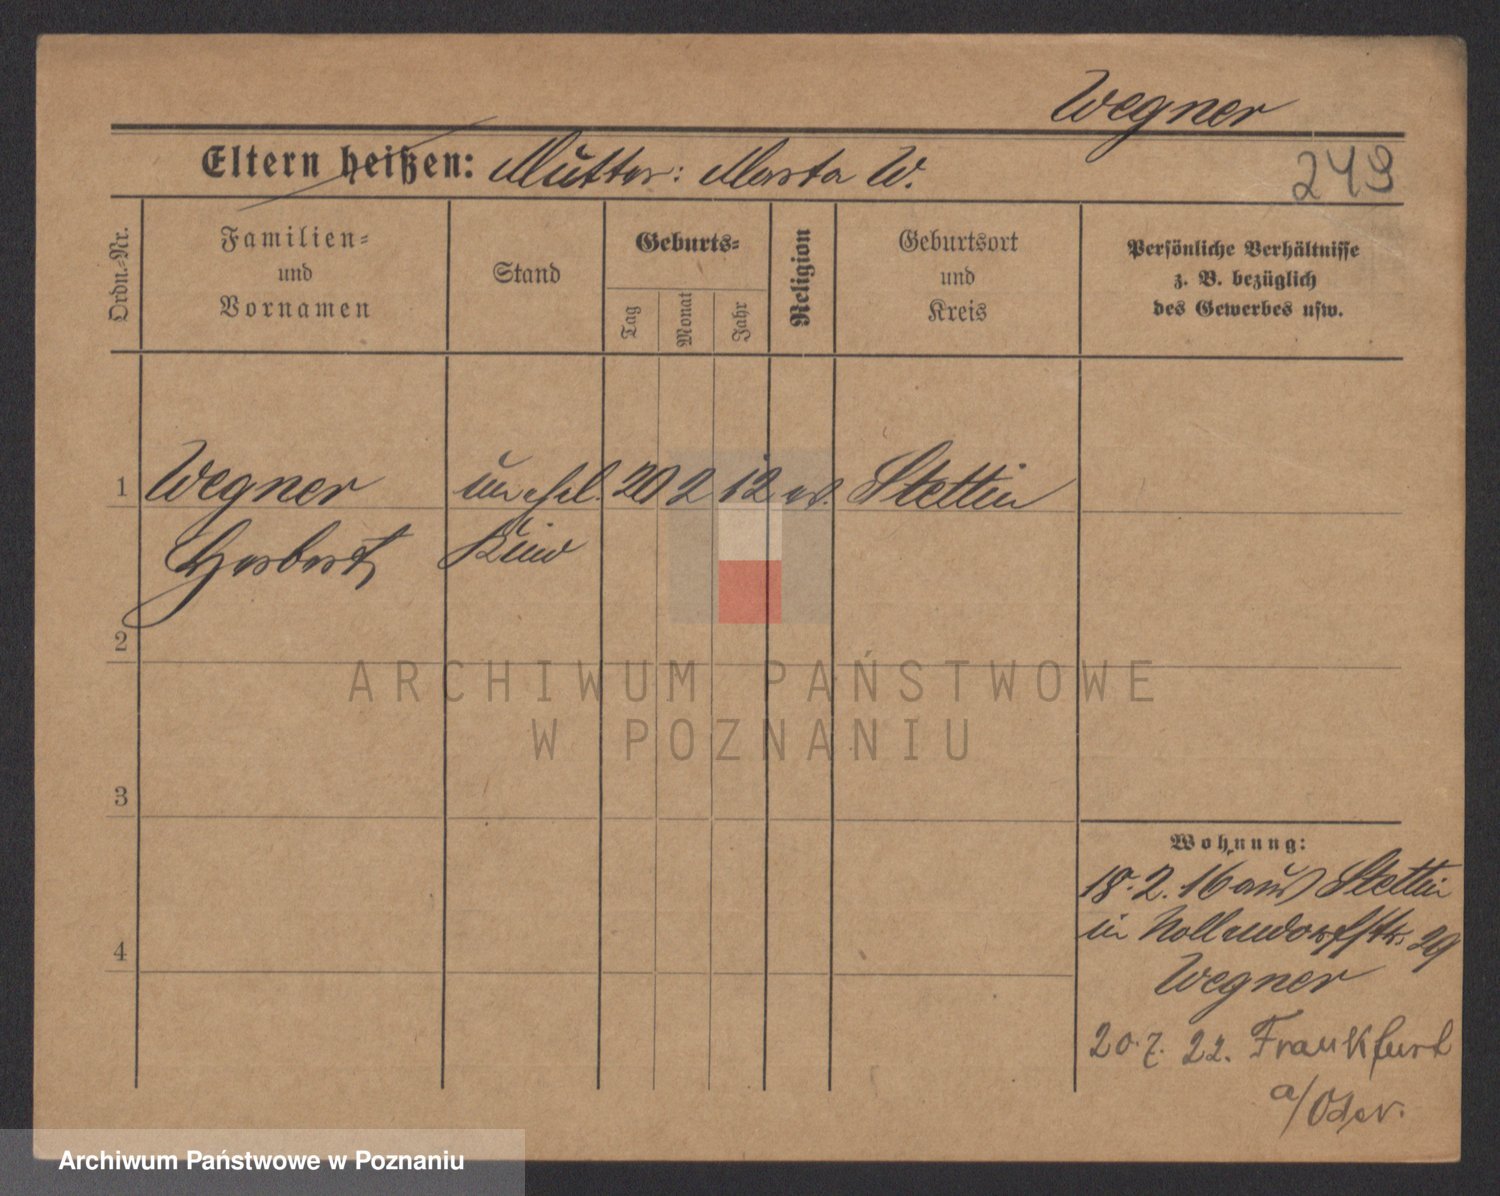 Wegner
Eltern heißen: Mutter: Marta W.
249
Ordn.-Nr.
Familien-
und
Vornamen
Stand
Geburts-
Tag
Monat
Jahr
Religion
Geburtsort
und
Kreis
Persönliche Verhältnisse
z. B. bezüglich
des Gewerbes usw.
1 Wegner unehel. 20 2 12 ev. Stettin
Herbert Kind
2
ARCHIWUM PAŃSTWOWE
W POZNANIU
3
Wohnung:
18.2.16 aus Stettin
in Nollendorfstr. 29
4
Wegner
20.7.22. Frankfurt
a/Oder.
Archiwum Państwowe w Poznaniu